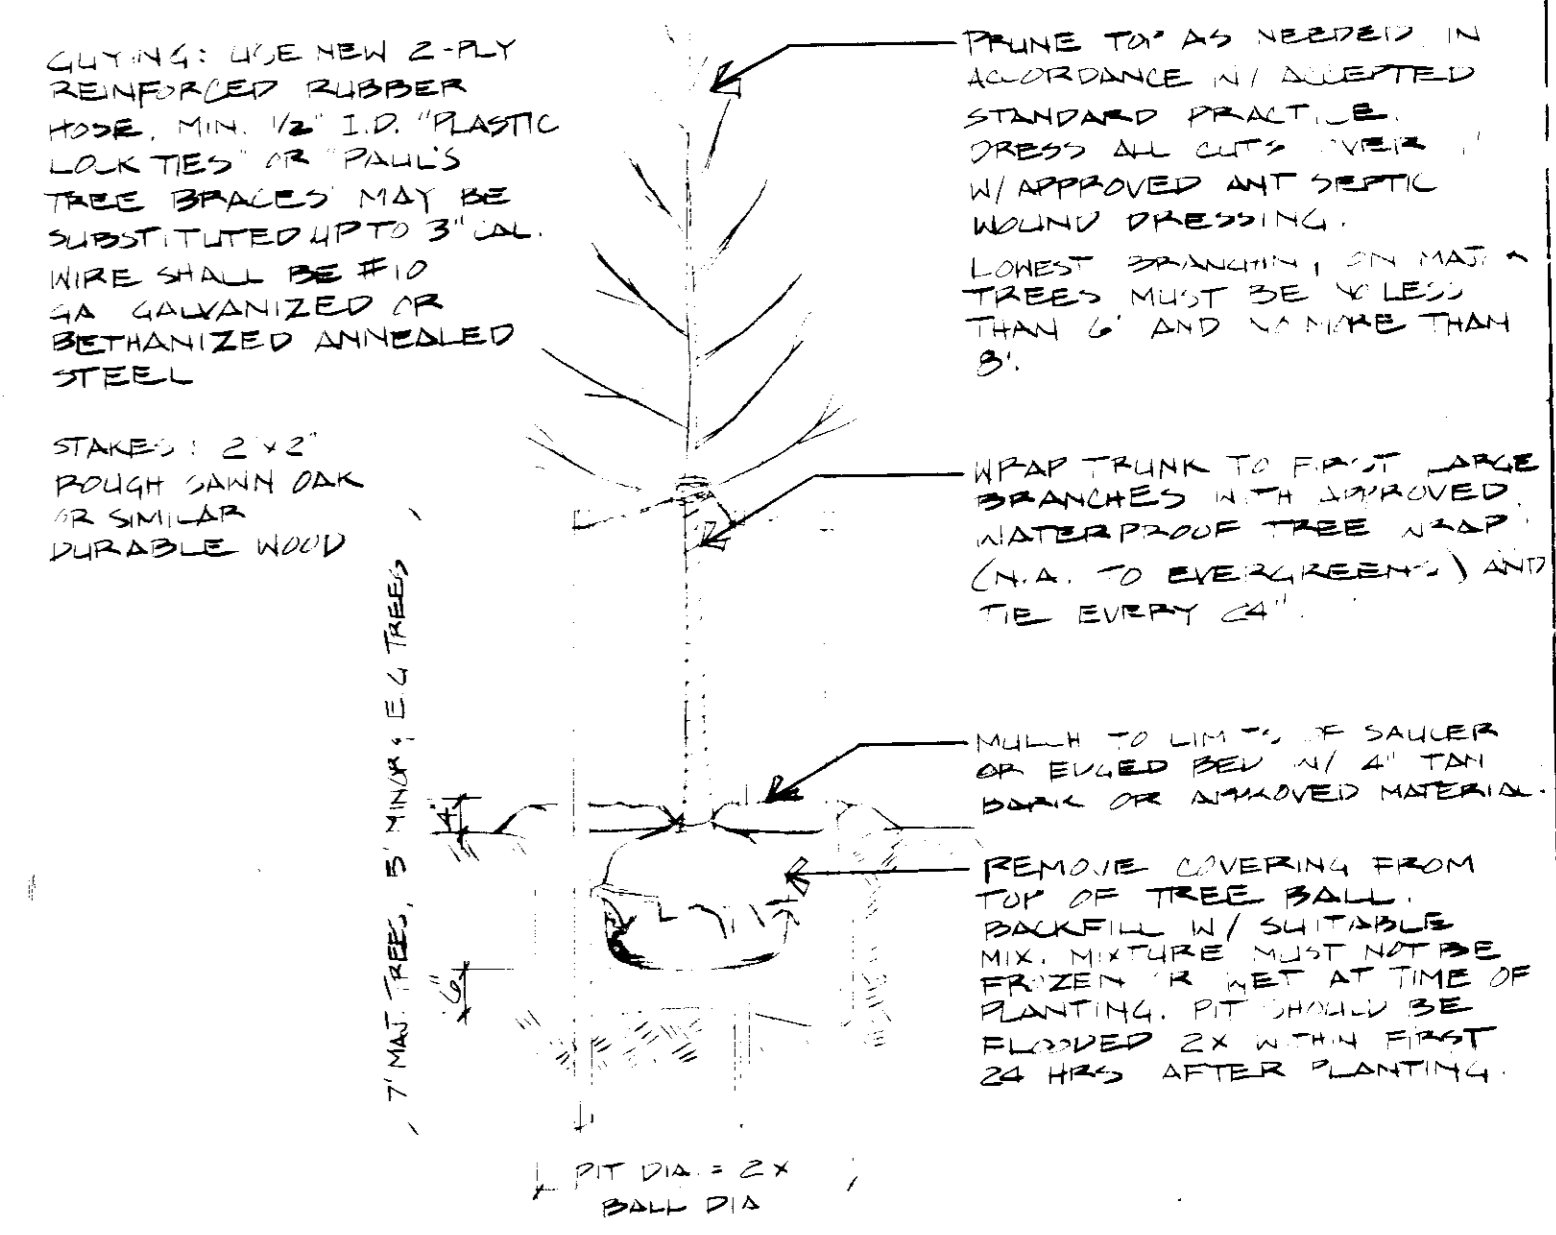 GUYING: USE NEW 2-PLY
REINFORCED RUBBER
HOSE, MIN. 1/2" I.D. "PLASTIC
LOCK TIES" OR "PAUL'S
TREE BRACES" MAY BE
SUBSTITUTED UP TO 3" CAL.
WIRE SHALL BE #10
GA GALVANIZED OR
BETHANIZED ANNEALED
STEEL
STAKES: 2"x2"
ROUGH SAWN OAK
OR SIMILAR
DURABLE WOOD
7' MAJ. TREES, 5' MINOR & E.G. TREES
4"
6"
PIT DIA. = 2X
BALL DIA
PRUNE TOP AS NEEDED IN
ACCORDANCE W/ ACCEPTED
STANDARD PRACTICE.
DRESS ALL CUTS OVER 1"
W/ APPROVED ANTISEPTIC
WOUND DRESSING.
LOWEST BRANCHING ON MAJOR
TREES MUST BE NO LESS
THAN 6' AND NO MORE THAN
8'.
WRAP TRUNK TO FIRST LARGE
BRANCHES WITH APPROVED
WATERPROOF TREE WRAP
(N.A. TO EVERGREENS) AND
TIE EVERY 24".
MULCH TO LIMITS OF SAUCER
OR EDGED BED W/ 4" TAN
BARK OR APPROVED MATERIAL.
REMOVE COVERING FROM
TOP OF TREE BALL.
BACKFILL W/ SUITABLE
MIX. MIXTURE MUST NOT BE
FROZEN OR WET AT TIME OF
PLANTING. PIT SHOULD BE
FLOODED 2X WITHIN FIRST
24 HRS AFTER PLANTING.